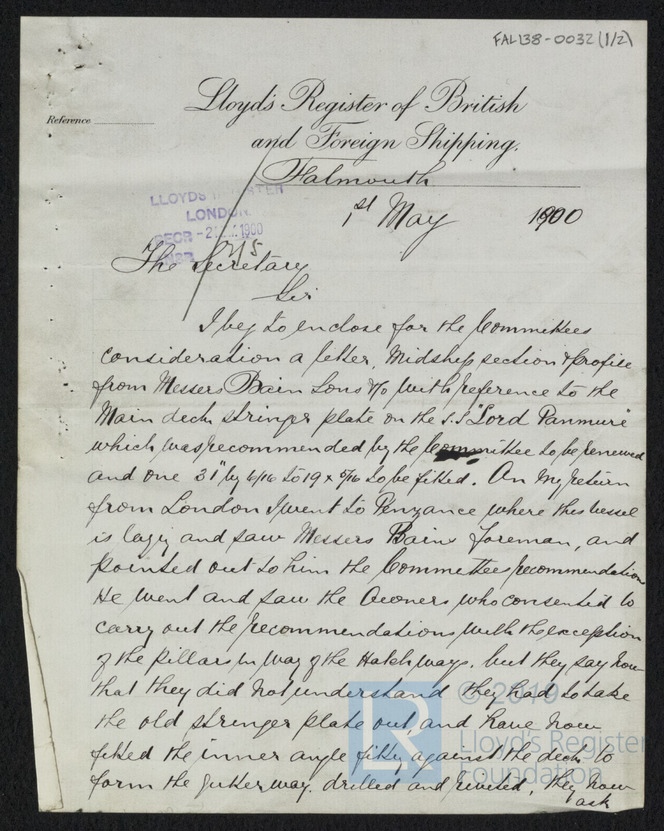 FAL138-0032(1/2)
Lloyd's Register of British
and Foreign Shipping.
Reference
Falmouth
1st May 1900
LLOYDS REGISTER
LONDON.
RECR -2 1900
The Secretary
Sir
I beg to enclose for the Committees
consideration a letter, Midship section & profile
from Messers Bain Sons & Co with reference to the
Main deck stringer plate on the s.s "Lord Panmure"
which was recommended by the Committee to be renewed
and one 31" by 6/16 to 19 x 5/16 to be fitted. On my return
from London I went to Penzance where this vessel
is laying and saw Messers Bains foreman, and
pointed out to him the Committees recommendation
He went and saw the Owners who consented to
carry out the recommendations with the exception
of the pillars in way of the Hatchways. but they say now
that they did not understand they had to take
the old stringer plate out, and have now
fitted the inner angle against the deck to
form the gutter way. drilled and riveted, they now
ask
© 2019
Lloyd's Register
Foundation
LR